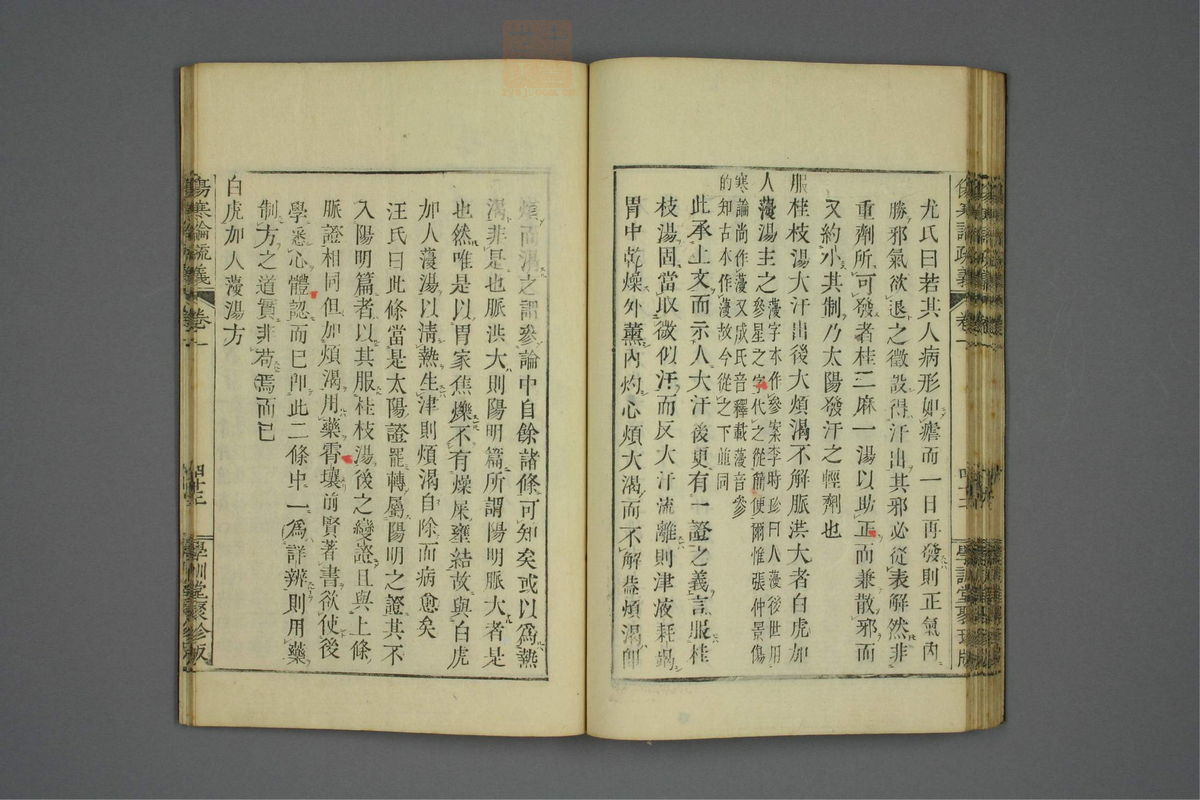 尤氏曰若其人病形如瘧而一日再發則正氣內
勝邪氣欲退之徵設得汗出其邪必從表解然非
重劑所可發者桂二麻一湯以助正而兼散邪而
又約小其制乃太陽發汗之輕劑也
服桂枝湯大汗出後大煩渴不解脈洪大者白虎加
人薓湯主之
薓字本作參案李時珍曰人薓後世用
參星之字代之從簡便爾惟張仲景傷
寒論尚作薓又成氏音釋載薓音參
的知古本作薓故今從之下並同
此承上文而示人大汗後更有一證之義言服桂
枝湯固當取微似汗而反大汗流離則津液耗竭
胃中乾燥外薰內灼心煩大渴而不解蓋煩渴卽
煩而渴之謂參論中自餘諸條可知矣或以爲熱
渴非是也脈洪大則陽明篇所謂陽明脈大者是
也然唯是以胃家焦爍不有燥屎壅結故與白虎
加人薓湯以淸熱生津則煩渴自除而病愈矣
汪氏曰此條當是太陽證罷轉屬陽明之證其不
入陽明篇者以其服桂枝湯後之變證且與上條
脈證相同但加煩渴用藥霄壤前賢著書欲使後
學悉心體認而已卽此二條中一爲詳辨則用藥
制方之道實非苟焉而已
白虎加人薓湯方
傷寒論疏義
卷一
學訓堂聚珍版